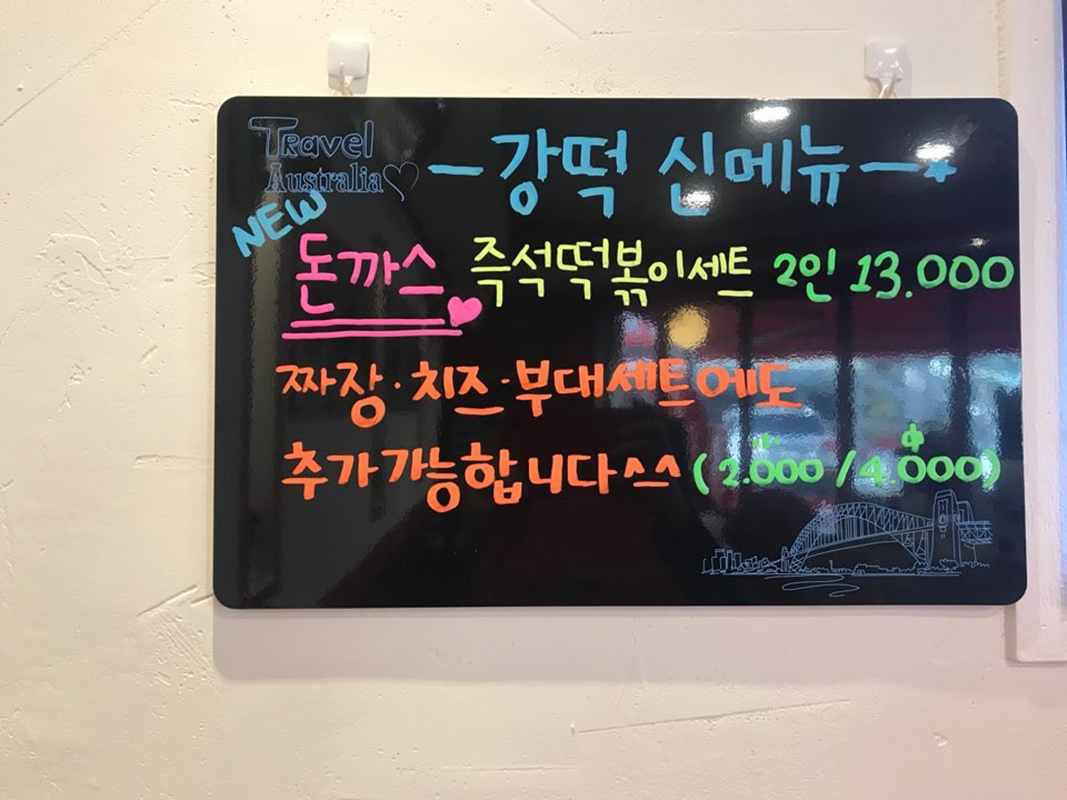 Travel
Australia
－강떡 신메뉴－
NEW
돈까스 즉석떡볶이세트 2인 13.000
짜장·치즈·부대세트에도
추가가능합니다^^ (小 2.000 / 中 4.000)